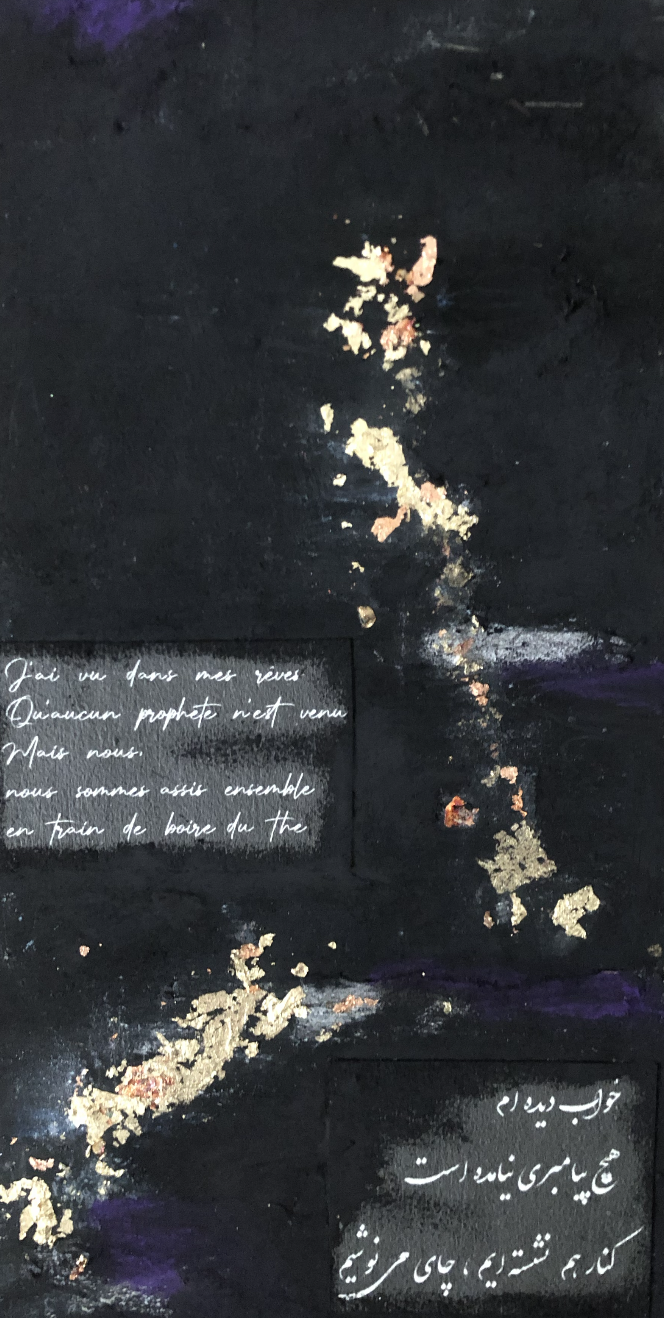 J'ai vu dans mes rêves
Qu'aucun prophète n'est venu
Mais nous.
nous sommes assis ensemble
en train de boire du the
خواب دیده ام
هیچ پیامبری نیامده است
کنار هم نشسته ایم ، چای می نوشیم